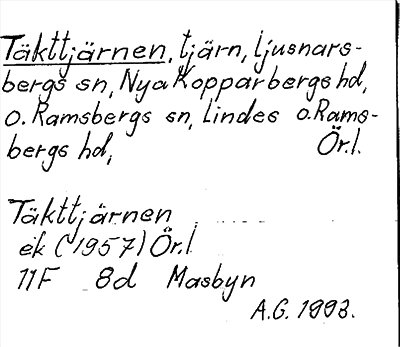 Täkttjärnen, tjärn, Ljusnars-
bergs sn, Nya Kopparbergs hd,
o. Ramsbergs sn, Lindes o. Rams-
bergs hd, Ör.l.
Täkttjärnen
ek (1957) Ör.l
11F 8d Masbyn
A.G. 1993.